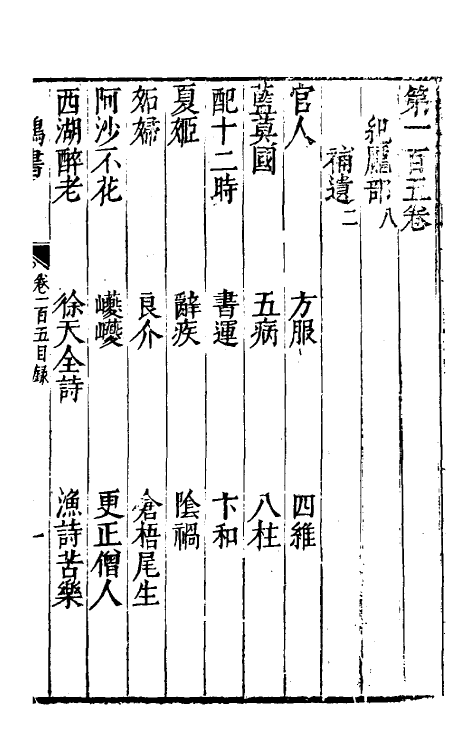 第一百五卷
紀麗部八
補遺二
官人　方服　四維
藍莫國　五病　八柱
配十二時　書運　卞和
夏姬　辭疾　陰禍
妬婦　良介　倉梧尾生
阿沙不花　巎巎　更正僧人
西湖醉老　徐天全詩　漁詩苦樂
鴻書　卷一百五目錄　一